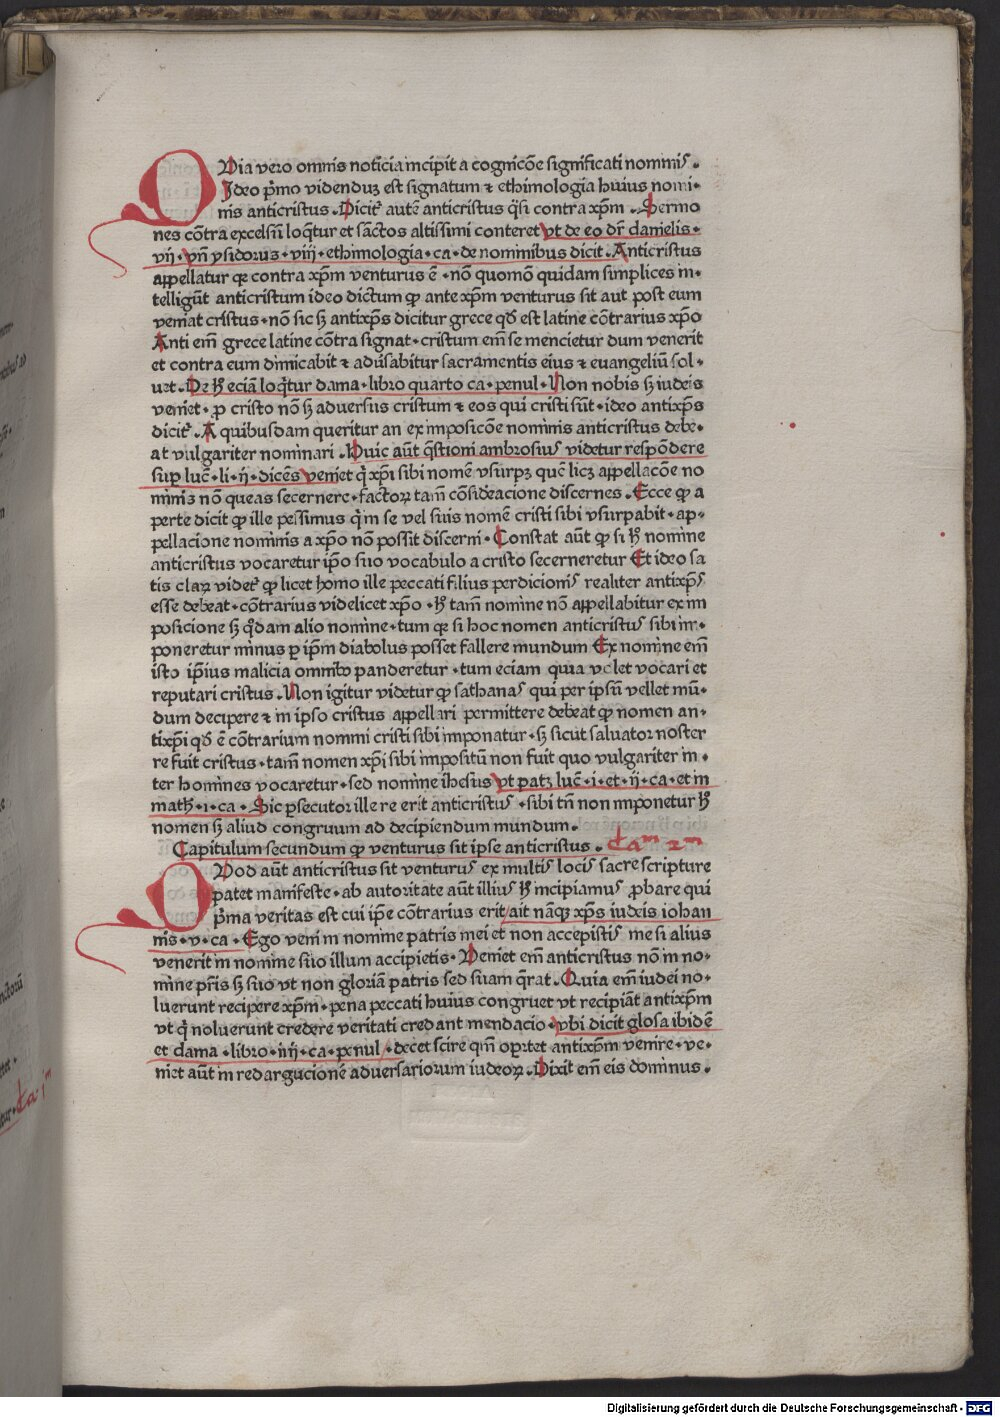 QVia vero omnis noticia incipit a cognicōe significati nominis .
Ideo pͥmo videnduꝫ est signatum ⁊ ethimologia huius nomi-
nis anticristus . Dicitᷣ autē anticristus qͣsi contra xp̄m . Sermo
nes cōtra excelsū loqͥtur et sāctos altissimi conteret vt de eo dr̄ danielis .
vij . vn̄ ysidorus . viij . ethimologia . ca . de nominibus dicit . Anticristus
appellatur qꝛ contra xp̄m venturus ē . nō quomō quidam simplices in-
telligūt anticristum ideo dictum ꝙ ante xp̄m venturus sit aut post eum
veniat cristus . nō sic sꝫ antixp̄s dicitur grece qḋ est latine cōtrarius xp̄o
Anti em̄ grece latine cōtra signat . cristum em̄ se mencietur dum venerit
et contra eum dimicabit ⁊ adūsabitur sacramentis eius ⁊ euangeliū sol-
uet . De h̄ eciā loqͥtur dama . libro quarto ca . penul . Non nobis sꝫ iudeis
veniet . ꝓ cristo nō sꝫ aduersus cristum ⁊ eos qui cristi sūt . ideo antixp̄s
dicitᷣ . A quibusdam queritur an ex imposicōe nominis anticristus debe-
at vulgariter nominari . Huic aūt qͣstioni ambrosius videtur respōdere
suꝑ luc̄ . li . ij . dicēs veniet qͥ xp̄i sibi nomē vsurpꝫ quē licꝫ appellacōe no
minis nō queas secernere . factoꝝ tam̄ cōsideacione discernes . Ecce ꝙ a
perte dicit ꝙ ille pessimus qͥm se vel suis nomē cristi sibi vsurpabit . ap-
pellacione nominis a xp̄o nō possit discerni . Constat aūt ꝙ si h̄ nomine
anticristus vocaretur ip̄o suo vocabulo a cristo secerneretur Et ideo sa
tis claꝝ videtᷣ ꝙ licet homo ille peccati filius perdicionis realiter antixp̄s
esse debeat . cōtrarius videlicet xp̄o . h̄ tam̄ nomine nō appellabitur ex im
posicione sꝫ qͦdam alio nomine . tum qꝛ si hoc nomen anticristus sibi im-
poneretur minus ꝑ ip̄m diabolus posset fallere mundum Ex nomine em̄
isto ip̄ius malicia omnibꝰ panderetur . tum eciam quia vellet vocari et
reputari cristus . Non igitur videtur ꝙ sathanas qui per ipsū vellet mū-
dum decipere ⁊ in ipso cristus appellari permittere debeat ꝙ nomen an-
tixp̄i qḋ ē cōtrarium nomini cristi sibi imponatur . sꝫ sicut saluator noster
re fuit cristus . tam̄ nomen xp̄i sibi impositū non fuit quo vulgariter in-
ter homines vocaretur . sed nomine ihesus vt patꝫ luc̄ . i . et . ij . ca . et in
math̄ . i . ca . Sic ꝑsecutor ille re erit anticristus . sibi tn̄ non imponetur h̄
nomen sꝫ aliud congruum ad decipiendum mundum .
Capitulum secundum ꝙ venturus sit ipse anticristus . Cam 2m
QVod aūt anticristus sit venturus ex multis locis sacre scripture
patet manifeste . ab autoritate aūt illius h̄ incipiamus ꝓbare qui
pͥma veritas est cui ip̄e cōtrarius erit ait nāqꝫ xp̄s iudeis iohan
nis . v . ca . Ego veni in nomine patris mei et non accepistis me si alius
venerit in nomine suo illum accipietis . Veniet em̄ anticristus nō in no-
mine pr̄is sꝫ suo vt non gloriā patris sed suam qͣrat . Quia em̄ iudei no-
luerunt recipere xp̄m . pena peccati huius congruet vt recipiāt antixp̄m
vt qͥ noluerunt credere veritati credant mendacio . vbi dicit glosa ibidē
et dama . libro . iiij . ca . penul . decet scire qm̄ oꝑtet antixp̄m venire . ve-
niet aūt in redargucionē aduersariorum iudeoꝝ . Dixit em̄ eis dominus .
Digitalisierung gefördert durch die Deutsche Forschungsgemeinschaft - DFG